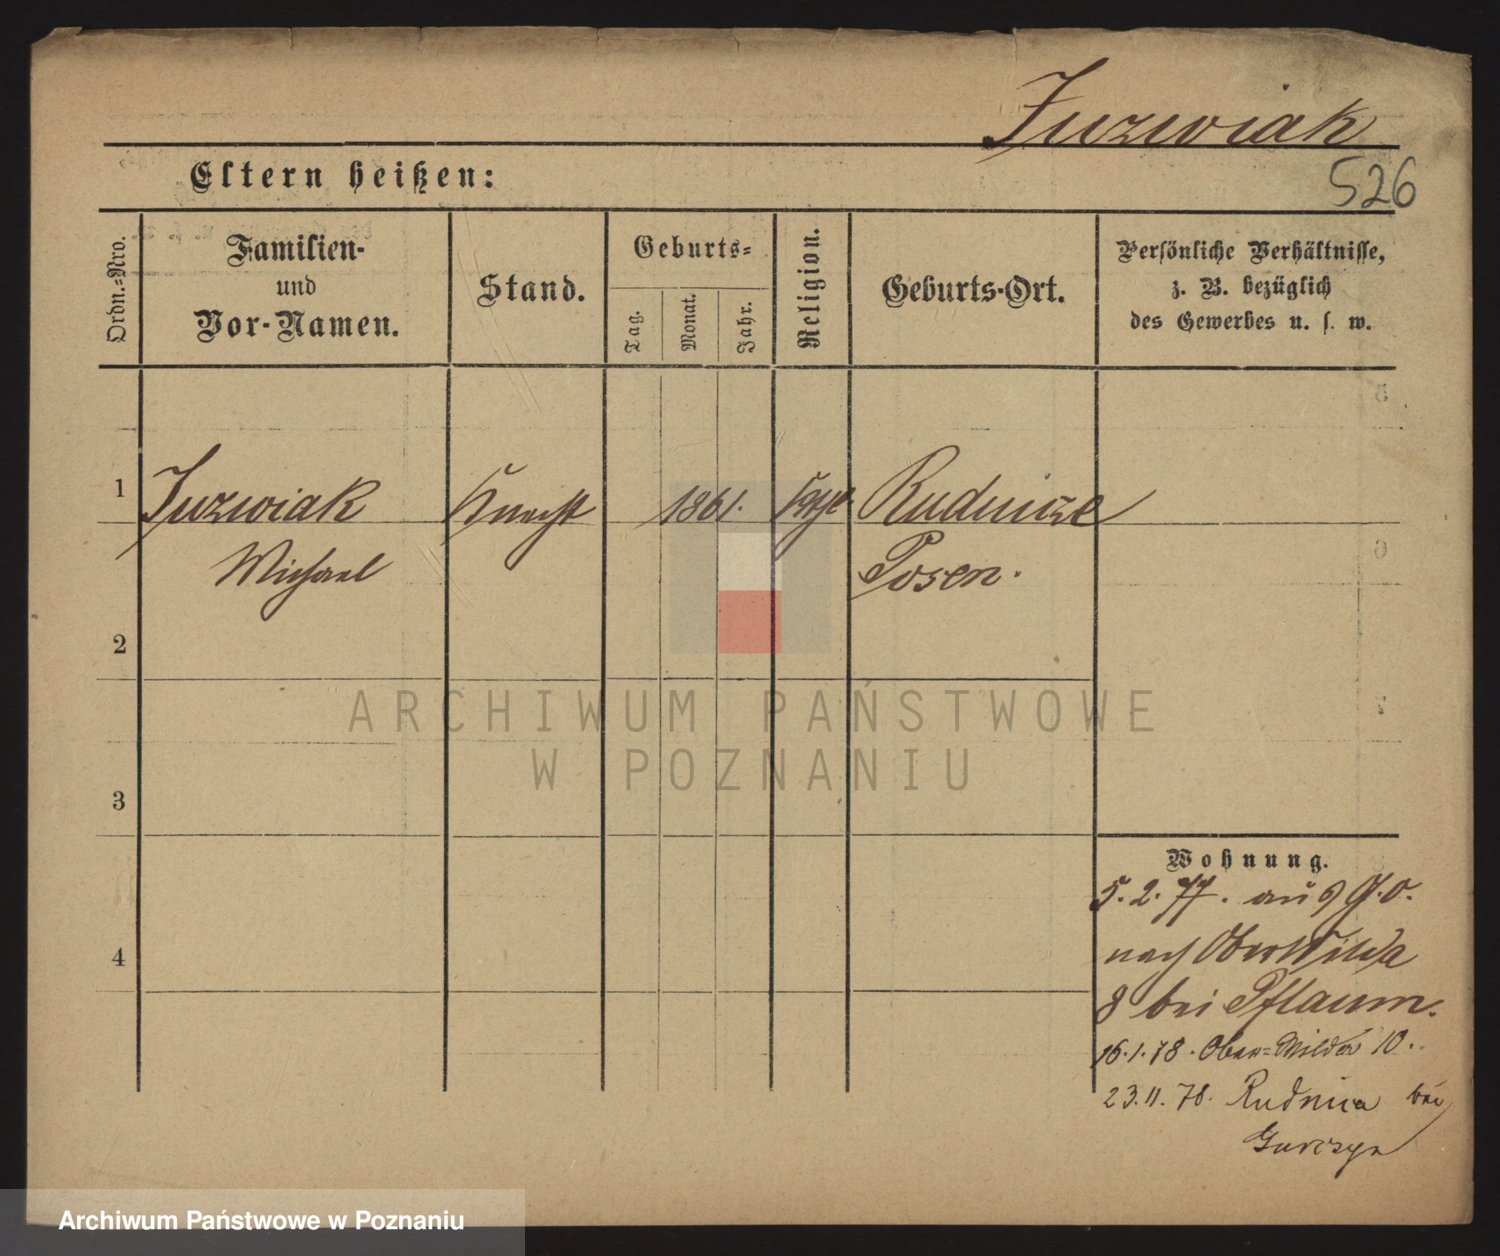 Juzwiak
Eltern heißen:
526
Ordn.-Nro.
Familien-
und
Vor-Namen.
Stand.
Geburts-
Tag.
Monat.
Jahr.
Religion.
Geburts-Ort.
Persönliche Verhältnisse,
z. B. bezüglich
des Gewerbes u. s. w.
1
Juzwiak
Michael
Knecht
1861.
kath.
Rudnicze
Posen.
2
3
4
Wohnung.
5.2.77. aus G.O.
nach Ober Wilda
8 bei Pflaum.
16.1.78. Ober-Wilda 10.
23.11.78. Rudnica bei
Gurczyn
ARCHIWUM PAŃSTWOWE
W POZNANIU
Archiwum Państwowe w Poznaniu